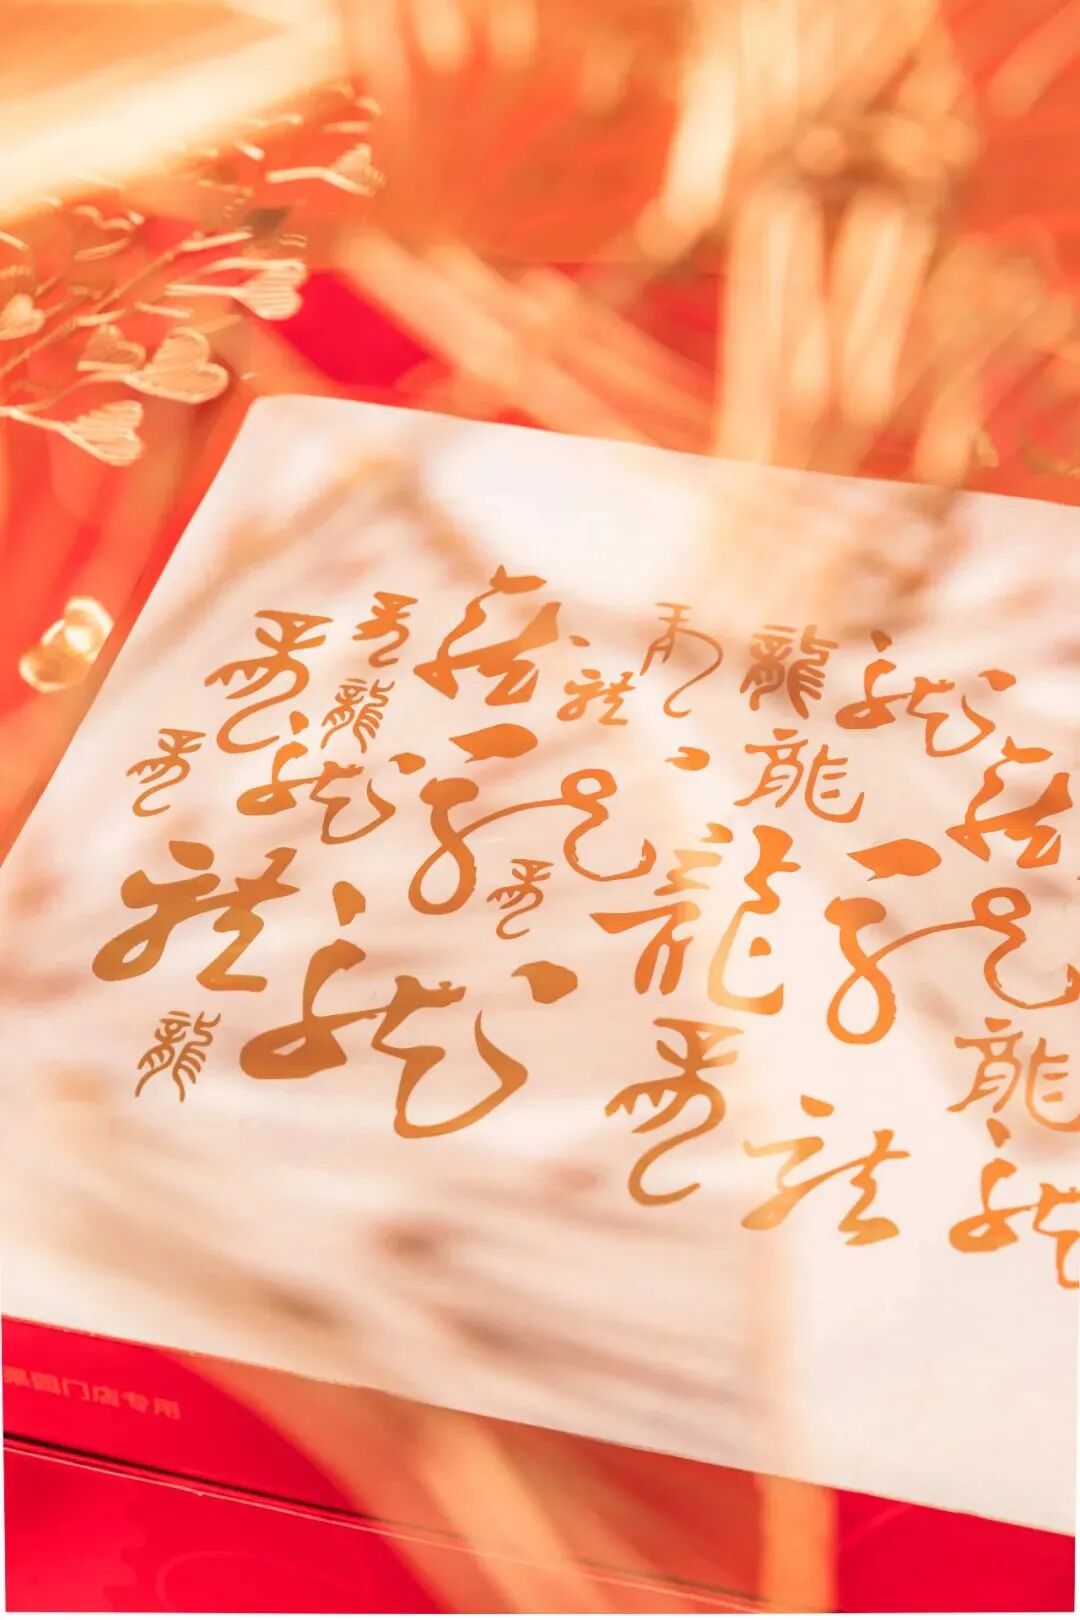 龍龍龍龍龍龍龍
龍龍龍龍龍龍
龍龍龍龍龍
龍龍龍龍龍
果园门店专用